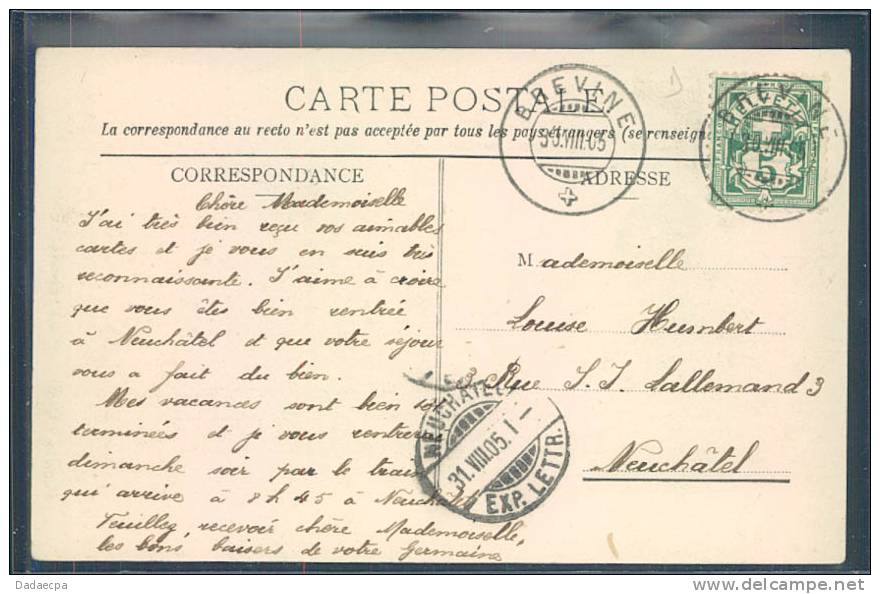 CARTE POSTALE
La correspondance au recto n'est pas acceptée par tous les pays étrangers (se renseign
BREVINE
30.VIII.05
BREVINE
HELVETIA
5
CORRESPONDANCE
ADRESSE
Chère Mademoiselle
J'ai très bien reçu vos aimables
cartes et je vous en suis très
reconnaissante. J'aime à croire
que vous êtes bien rentrée
à Neuchâtel et que votre séjour
vous a fait du bien.
Mes vacances sont bien
terminées et je vous
dimanche soir par le train
qui arrive à 8 h 45 à Neuchâtel
Veuillez recevoir chère Mademoiselle,
les bons baisers de votre Germaine
Mademoiselle
Louise Humbert
Rue J. J. Lallemand 3
Neuchâtel
NEUCHATEL
31.VIII.05.I-
EXP. LETTR.
Dadaecpa
delcampe.net